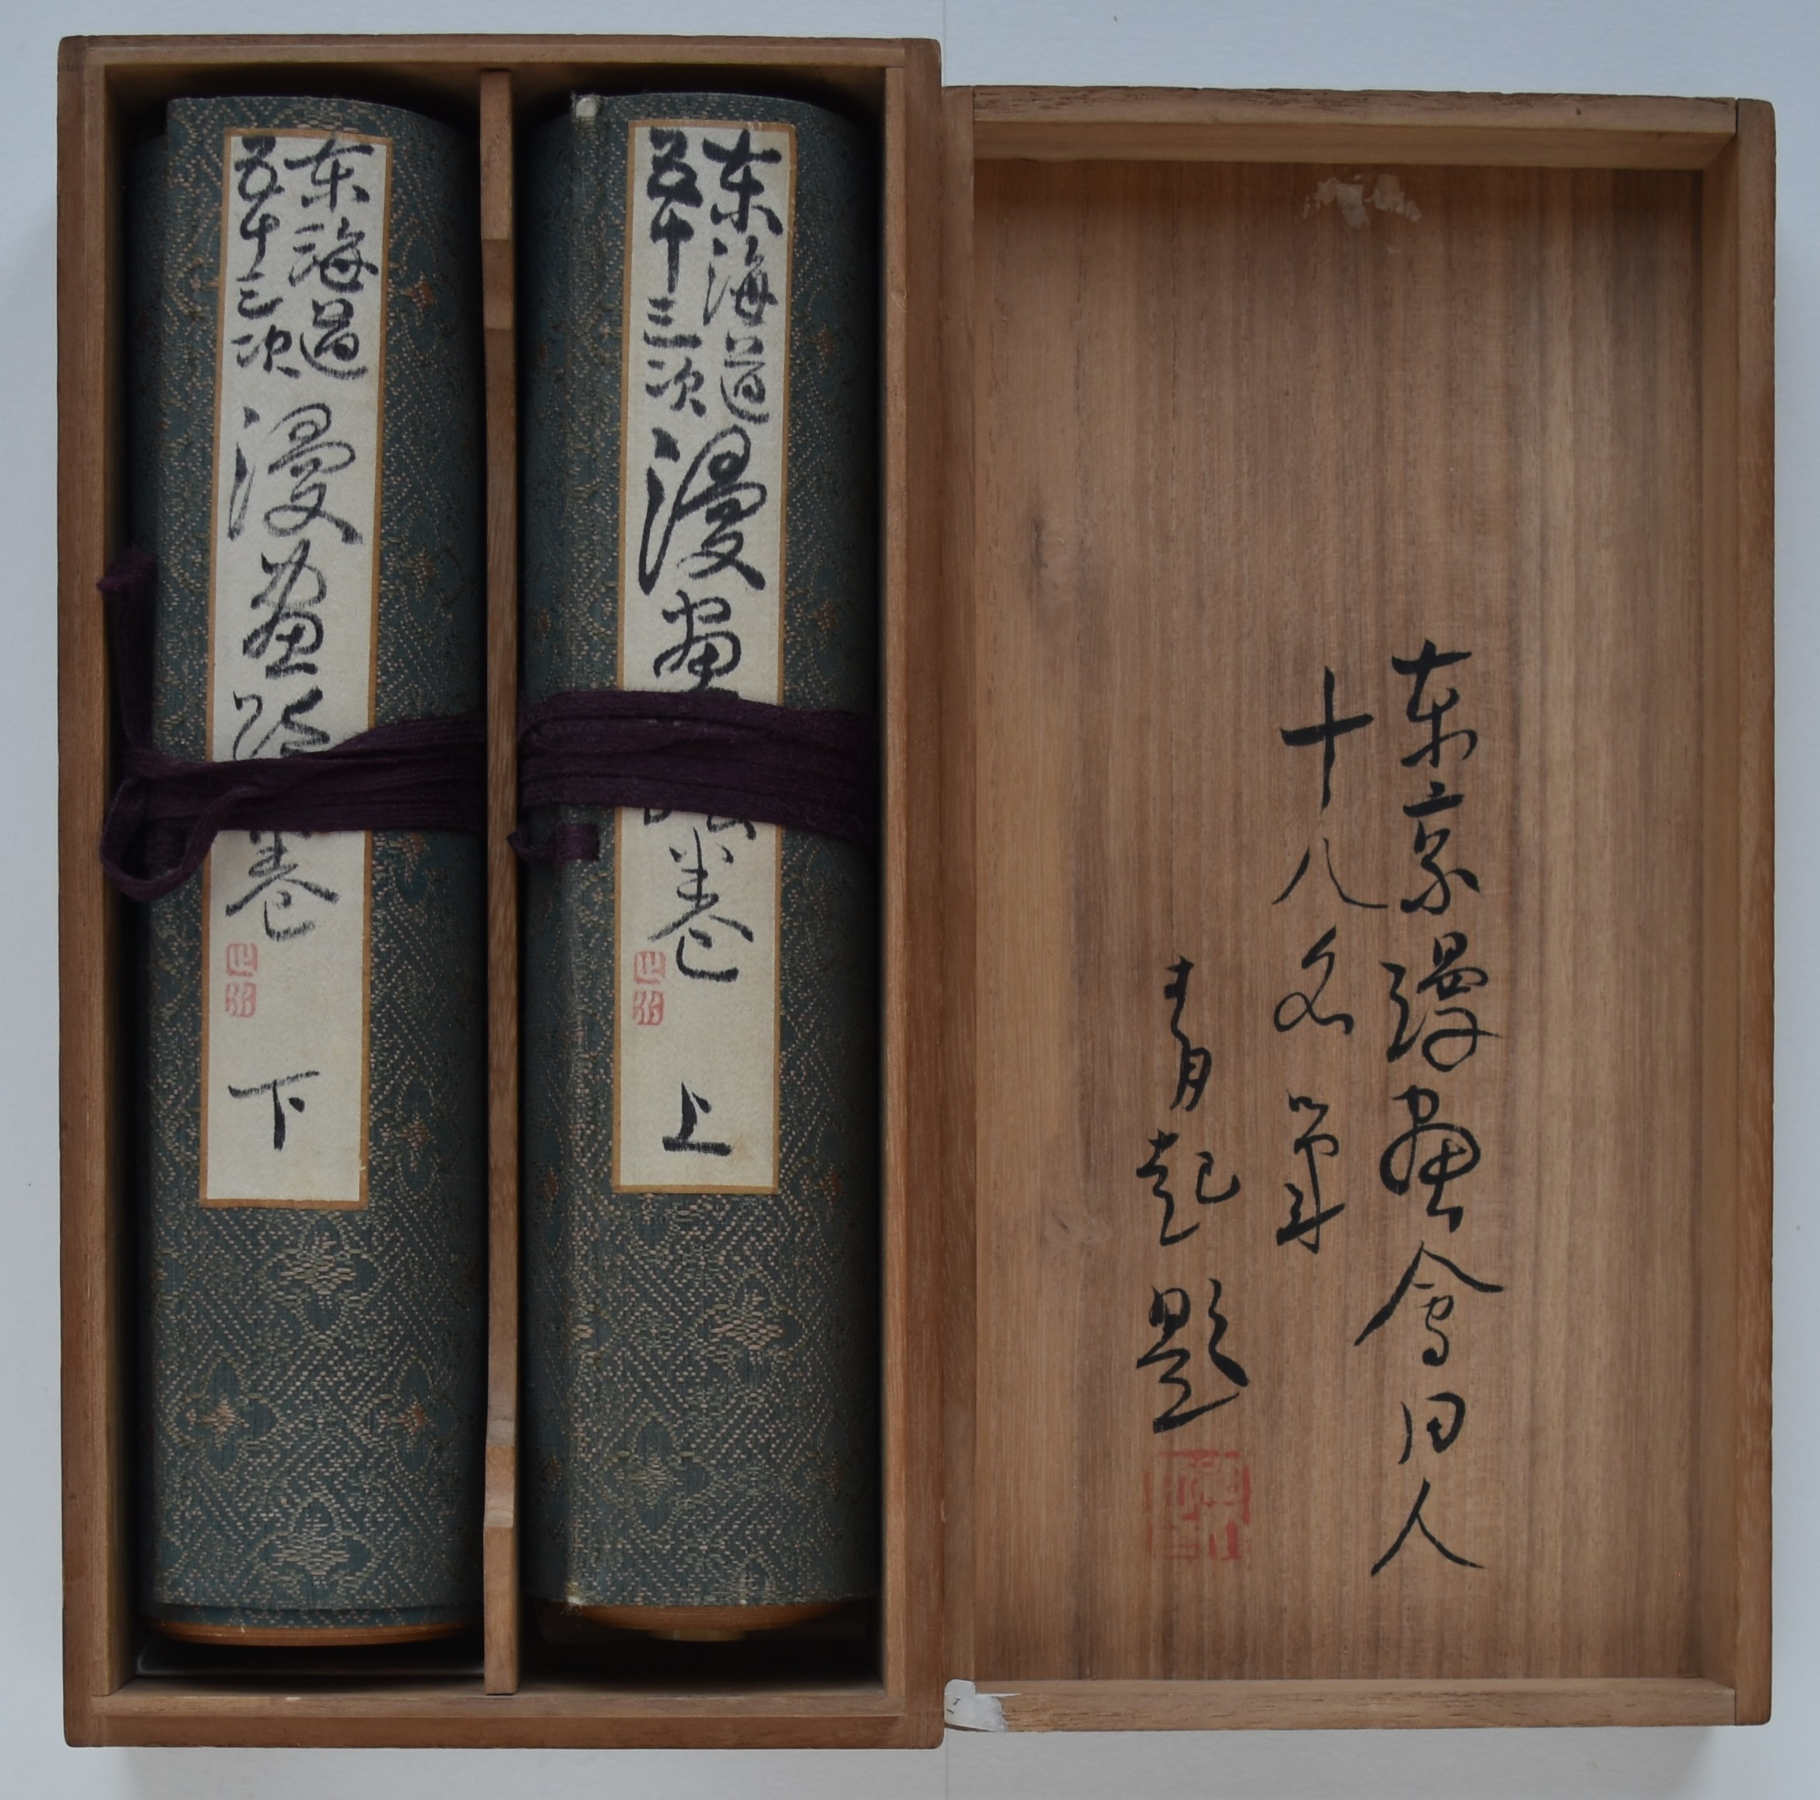 東京漫畫會同人
十八名筆
青起題
東海道
五十三次
漫畫絵巻
上
東海道
五十三次
漫畫絵巻
下